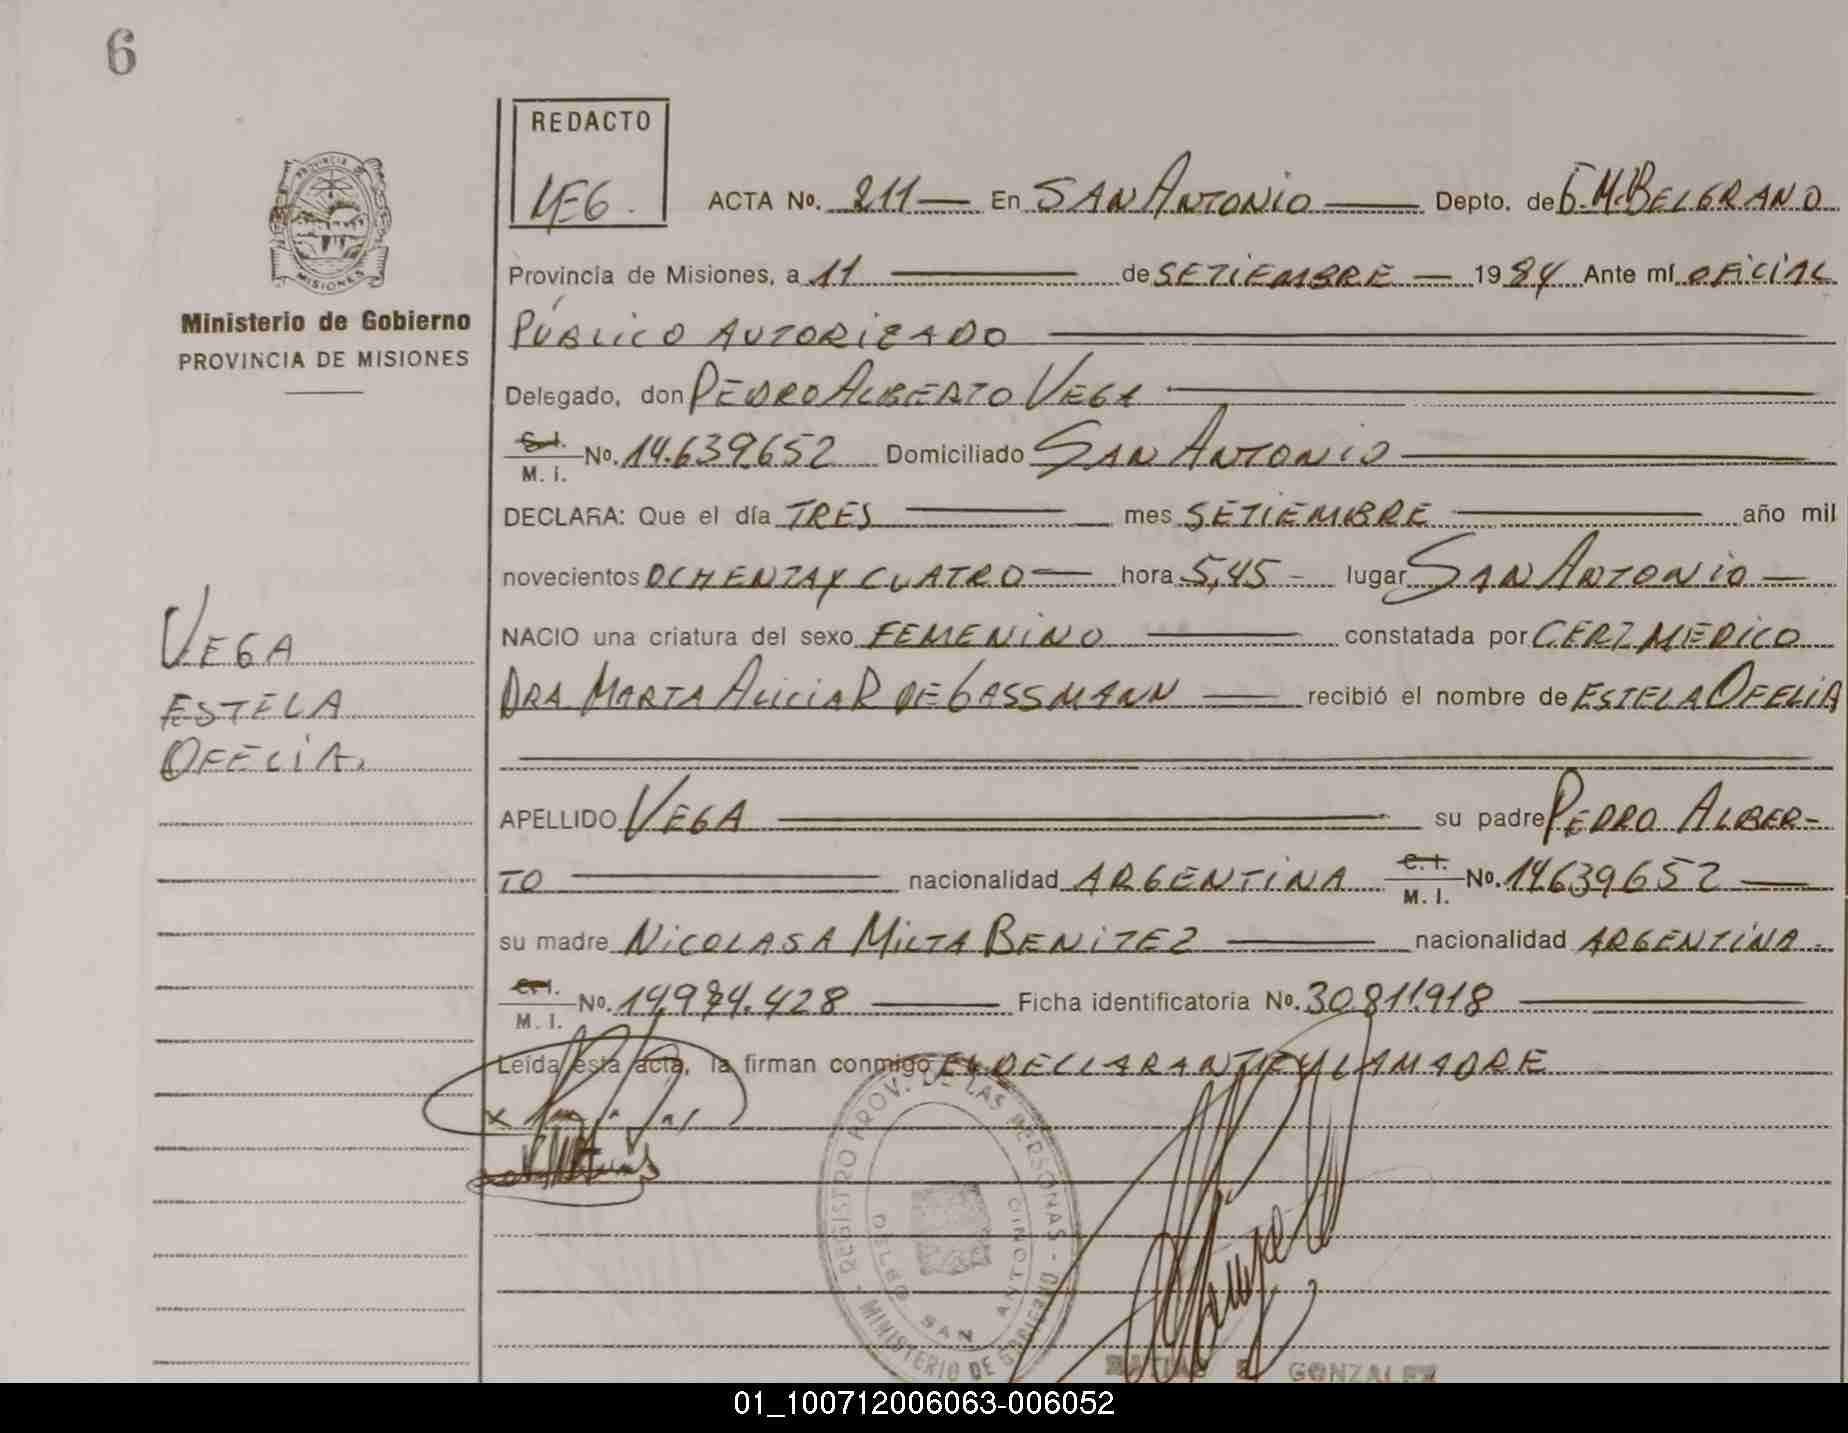 6
REDACTO
ACTA No. 211 En SAN ANTONIO Depto. de G. M. BELGRANO
Provincia de Misiones, a 11 de SETIEMBRE 1984 Ante mí OFICIAL
PÚBLICO AUTORIZADO
PROVINCIA
MISIONES
Ministerio de Gobierno
PROVINCIA DE MISIONES
Delegado, don PEDRO ALBERTO VEGA
C. I. M. I. No. 14.639.652 Domiciliado SAN ANTONIO
DECLARA: Que el día TRES mes SETIEMBRE año mil
novecientos OCHENTA Y CUATRO hora 5,45 lugar SAN ANTONIO
NACIO una criatura del sexo FEMENINO constatada por CERT MEDICO
DRA MARTA ALICIA R DE GASSMANN recibió el nombre de ESTELA OFELIA
VEGA
ESTELA
OFELIA.
APELLIDO VEGA su padre PEDRO ALBER-
TO nacionalidad ARGENTINA C. I. M. I. No. 14639652
su madre NICOLASA MILTA BENITEZ nacionalidad ARGENTINA
C. I. M. I. No. Ficha identificatoria No. 30.811.918
Leída esta acta, la firman conmigo EL DECLARANTE Y LA MADRE
REGISTRO PROV. DE LAS PERSONAS - MINISTERIO DE GOBIERNO
DELEG. SAN ANTONIO
GONZALEZ
01_100712006063-006052